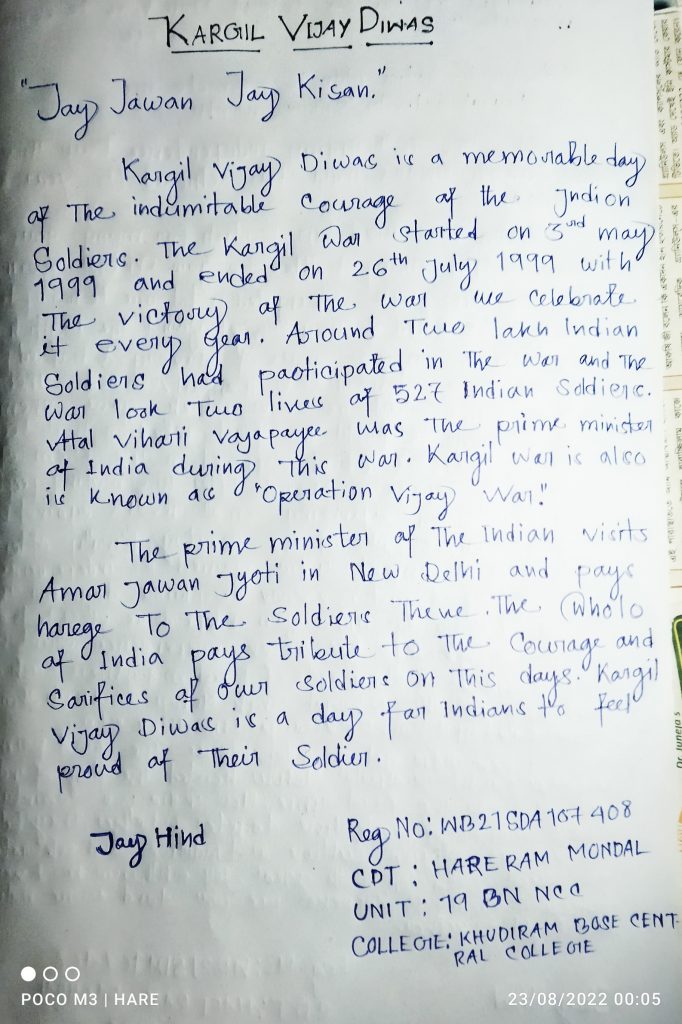 KARGIL VIJAY DIWAS
"Jay Jawan Jay Kisan."
Kargil Vijay Diwas is a memorable day
of The indumitable Courage of the Indion
Soldiers. The Kargil War started on 3rd may
1999 and ended on 26th July 1999 with
The victory of The war we celebrate
it every year. Around Two lakh Indian
Soldiers had paoticipated in The war and The
war look Two lives of 527 Indian Soldiers.
Atal Vihari Vajapayee was The prime minister
of India during This war. Kargil war is also
is known as "Operation Vijay War."
The prime minister of The Indian visits
Amar Jawan Jyoti in New Delhi and pays
harege To The Soldiers There. The Wholo
of India pays tribute to The Courage and
Sarifices of our soldiers on This days. Kargil
Vijay Diwas is a day for Indians to feel
proud of Their Soldier.
Jay Hind
Reg No: WB21SDA167408
CDT : HARERAM MONDAL
UNIT : 19 BN NCC
COLLEGE: KHUDIRAM BOSE CENT-
RAL COLLEGE
POCO M3 | HARE
23/08/2022 00:05